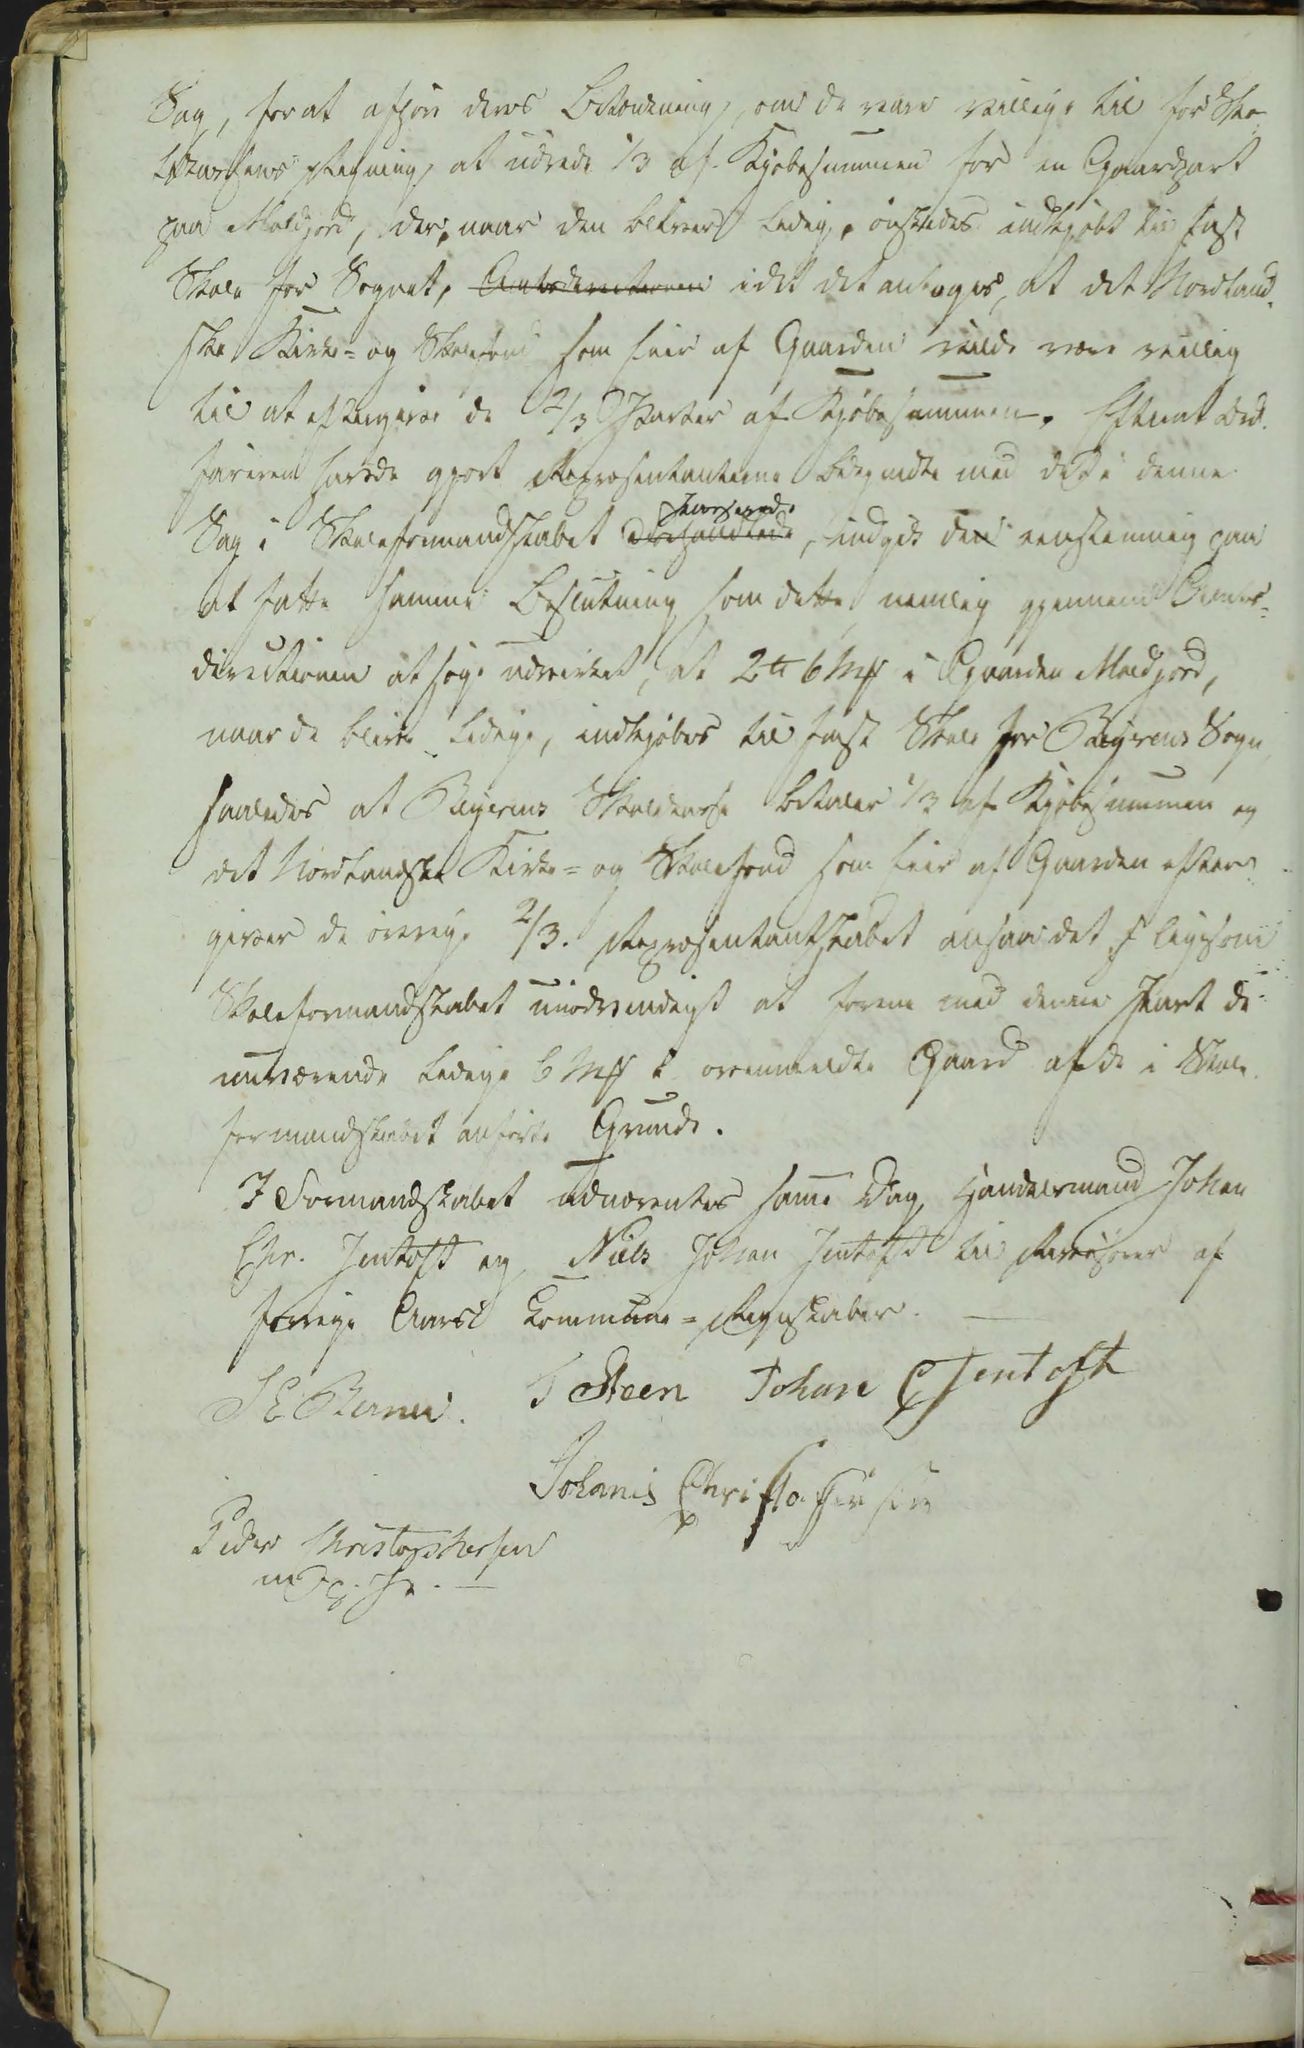 Dag, for at afgive deres Betænkning, om de vare villige til for Sko-
lekassens Regning at udrede 1/3 af Kjøbesummen for en Gaardpart
paa Moldjord, der, naar den bliver ledig, ønskedes indkjøbt til fast
Skole for Sognet, idet det antoges, at det Nordland-
ske Kirke- og Skolefond som Eier af Gaarden vilde være villig
til at eftergive de 2/3 Parter af Kjøbesummen. Efterat Ord-
føreren havde gjort Repræsentanterne bekjendte med det i denne
Sag i Skoleformandskabet passerede, indgik de eenstemmig paa
at fatte samme Beslutning som dette, nemlig gjennem Amts-
directionen at søge udvirket, at 2 6 i Gaarden Moldjord,
naar de blive ledige, indkjøbes til fast Skole for Beijerens Sogn,
saaledes at Beijerens Skolekasse betaler 1/3 af Kjøbesummen og
det Nordlandske Kirke- og Skolefond som Eier af Gaarden efter-
giver de øvrige 2/3. Repræsentantskabet ansaa det ligesom
Skoleformandskabet unødvendigt at forene med denne Part de
nuværende ledige 6 i ovenmeldte Gaard af de i Skole-
formandskabet anførte Grunde.
I Formandskabet udnævntes samme Dag Handelsmand Johan
Chr. Jentoft og Niels Johan Jentoft til Revisorer af
forrige Aars Kommune-Regnskaber.
Steen Johan C Jentoft
Johanis Christofersen
Peder Christophersen